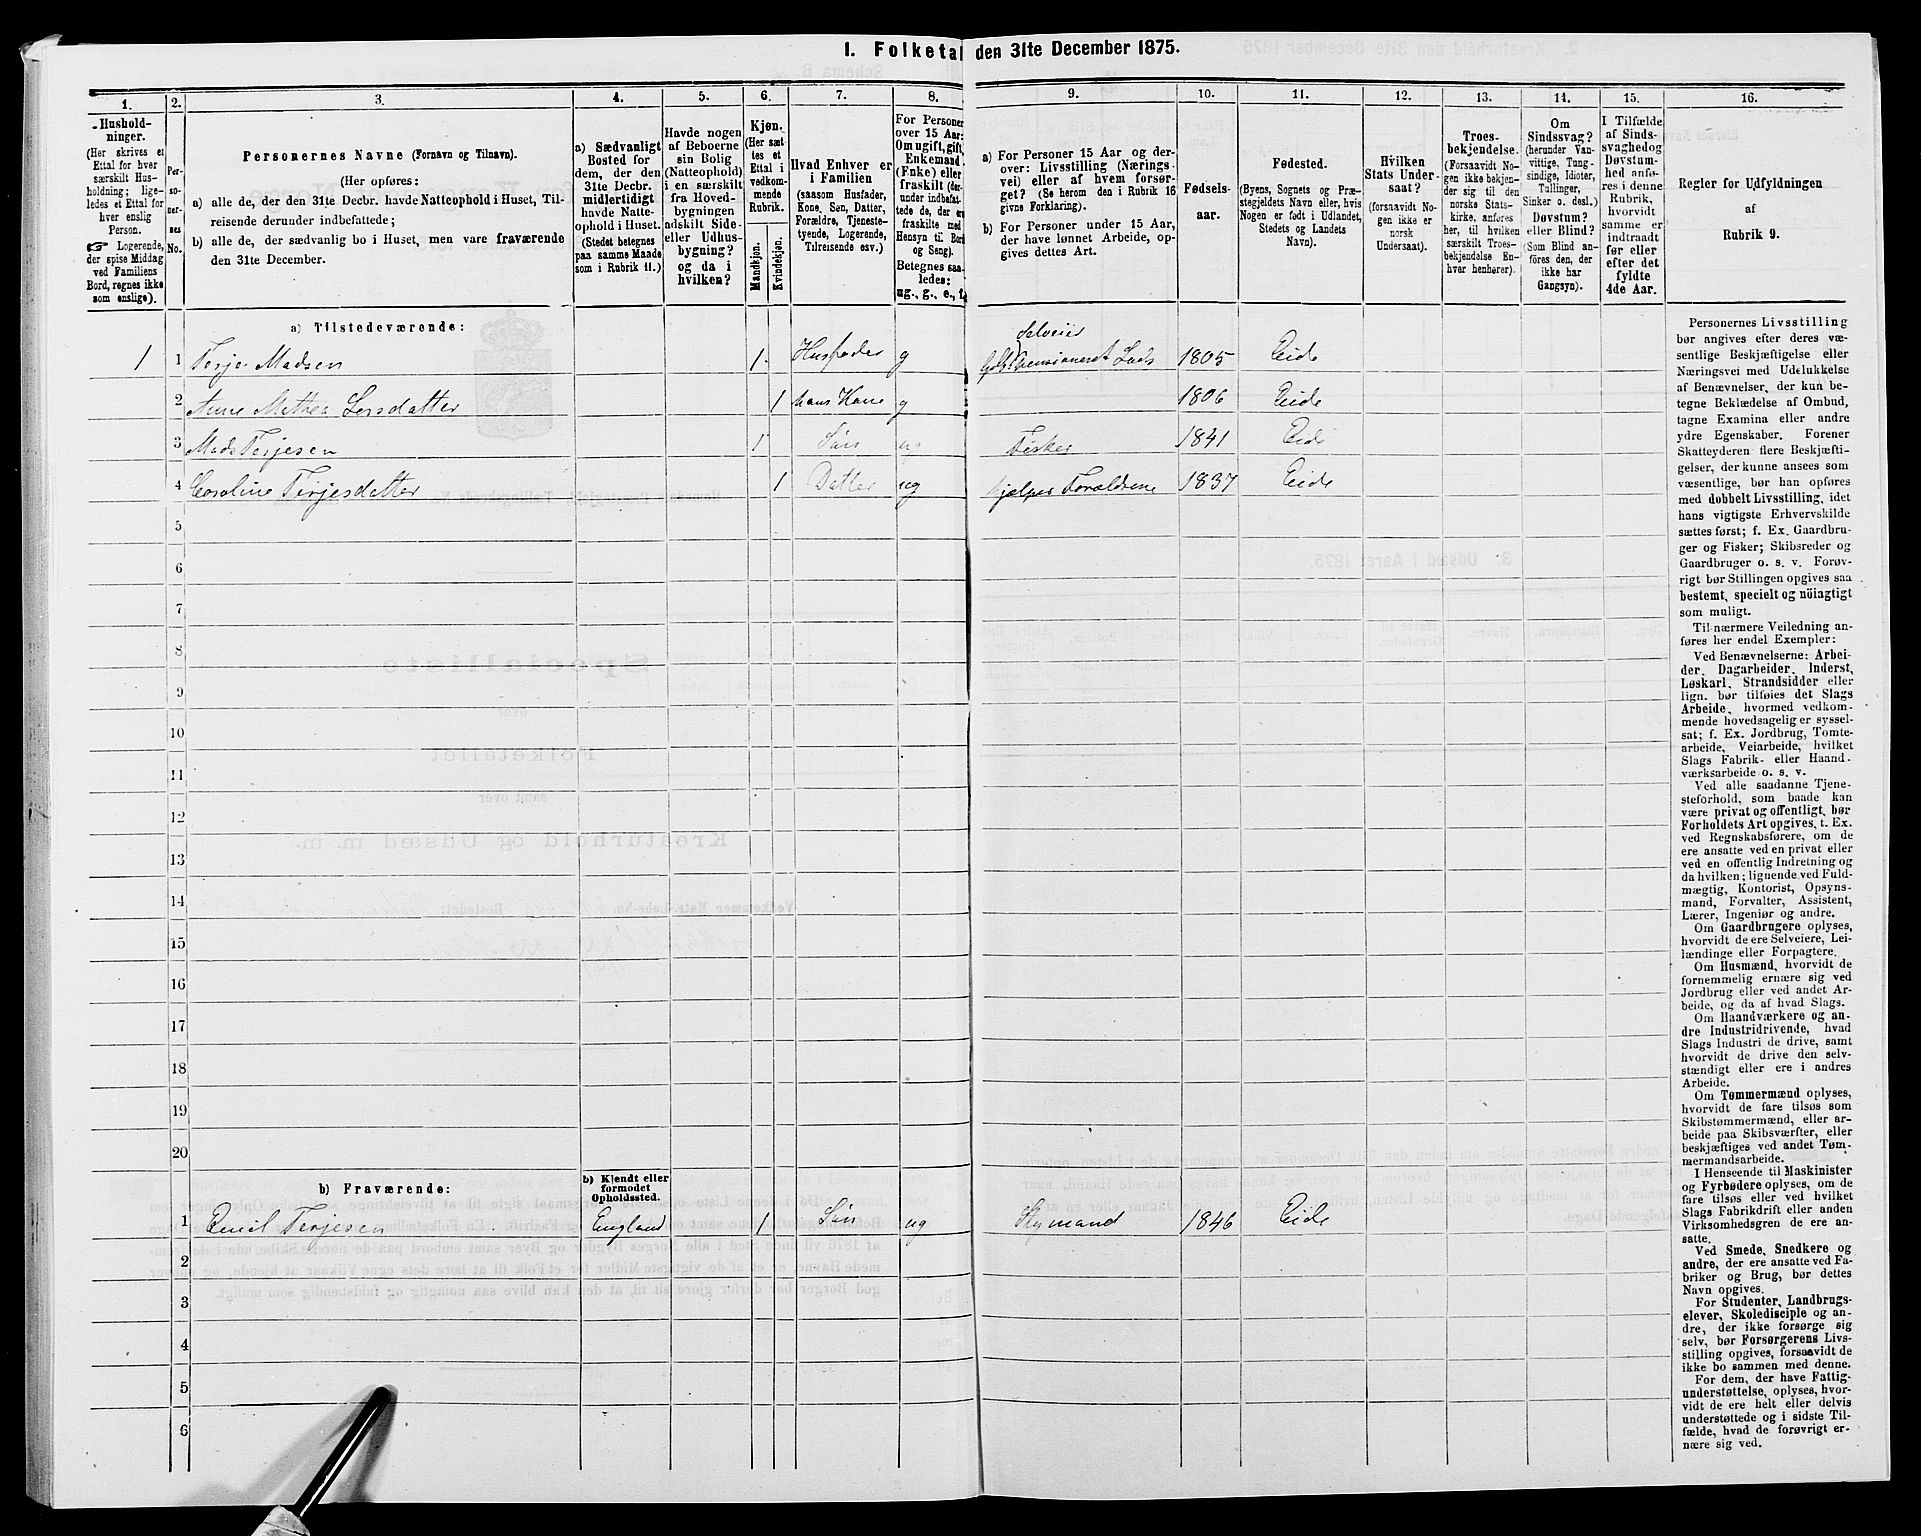 1. Folketal den 31te December 1875.
1. 2. 3. 4. 5. 6. 7. 8. 9. 10. 11. 12. 13. 14. 15. 16.
Hushold-
ninger.
(Her skrives et
Ettal for hver
særskilt Hus-
holdning; lige-
ledes et Ettal for
hver enslig
Person.
☞ Logerende,
der spise Middag
ved Familiens
Bord, regnes ikke
som enslige).
Per-
so-
ner-
nes
No.
Personernes Navne (Fornavn og Tilnavn).
(Her opføres:
a) alle de, der den 31te Decbr. havde Natteophold i Huset, Til-
reisende derunder indbefattede;
b) alle de, der sædvanlig bo i Huset, men vare fraværende
den 31te December.
a) Sædvanligt
Bosted for
dem, der den
31te Decbr.
midlertidigt
havde Natte-
ophold i Huset.
(Stedet betegnes
paa samme Maade
som i Rubrik 11.)
Havde nogen
af Beboerne
sin Bolig
(Natteophold)
i en særskilt
fra Hoved-
bygningen
adskilt Side-
eller Udhus-
bygning?
og da i
hvilken?
Kjøn.
(Her sæt-
tes et
Ettal i
vedkom-
mende
Rubrik.
Mandkjøn.
Kvindekjøn.
Hvad Enhver er
i Familien
(saasom Husfader,
Kone, Søn, Datter,
Forældre, Tjeneste-
tyende, Logerende,
Tilreisende osv.)
For Personer
over 15 Aar:
Om ugift, gift,
Enkemand
(Enke) eller
fraskilt (der-
under indbefat-
tede de, der ere
fraskilte med
Hensyn til Bord
og Seng).
Betegnes saa-
ledes:
ug., g., e., f.
a) For Personer 15 Aar og der-
over: Livsstilling (Nærings-
vei) eller af hvem forsør-
get? (Se herom den i Rubrik 16
givne Forklaring).
b) For Personer under 15 Aar,
der have lønnet Arbeide, op-
gives dettes Art.
Fødsels-
aar.
Fødested.
(Byens, Sognets og Præ-
stegjeldets Navn eller, hvis
Nogen er født i Udlandet,
Stedets og Landets
Navn).
Hvilken
Stats Under-
saat?
(forsaavidt No-
gen ikke er
norsk
Undersaat).
Troes-
bekjendelse.
(Forsaavidt No-
gen ikke bekjen-
der sig til den
norske Stats-
kirke, anføres
her, til hvilken
særskilt Troes-
bekjendelse En-
hver henhører).
Om
Sindssvag?
(herunder Van-
vittige, Tung-
sindige, Idioter,
Tullinger,
Sinker o. desl.)
Døvstum?
eller Blind?
(Som Blind an-
føres den, der
ikke har
Gangsyn).
I Tilfælde
af Sinds-
svaghed og
Døvstum-
hed anfø-
res i denne
Rubrik,
hvorvidt
samme er
indtraadt
før eller
efter det
fyldte
4de Aar.
Regler for Udfyldningen
af
Rubrik 9.
a) Tilstedeværende:
Selveier
1 1 Terje Madsen 1 Husfader g Pensioneret Lods 1805 Eide
2 Anne Mathea Larsdatter 1 hans Kone g 1806 Eide
3 Mads Terjesen 1 Søn ug Fisker 1841 Eide
4 Caroline Terjesdatter 1 Datter ug hjælper Forældrene 1837 Eide
5
6
7
8
9
10
11
12
13
14
15
16
17
18
19
20
b) Fraværende:
b) Kjendt eller
formodet
Opholdssted.
1 Emil Terjesen England 1 Søn ug Skymand 1846 Eide
2
3
4
5
6
Personernes Livsstilling
bør angives efter deres væ-
sentlige Beskjæftigelse eller
Næringsvei med Udelukkelse
af Benævnelser, der kun be-
tegne Beklædelse af Ombud,
tagne Examina eller andre
ydre Egenskaber. Forener
Skatteyderen flere Beskjæfti-
gelser, der kunne ansees som
væsentlige, bør han opføres
med dobbelt Livsstilling, idet
hans vigtigste Erhvervskilde
sættes først; f. Ex. Gaardbru-
ger og Fisker; Skibsreder og
Gaardbruger o. s. v. Forøv-
rigt bør Stillingen opgives saa
bestemt, specielt og nöiagtigt
som muligt.
Til nærmere Veiledning an-
føres her endel Exempler:
Ved Benævnelserne: Arbei-
der, Dagarbeider, Inderst,
Løskarl, Strandsidder eller
lign. bør tilføies det Slags
Arbeide, hvormed vedkom-
mende hovedsagelig er syssel-
sat; f. Ex. Jordbrug, Tomte-
arbeide, Veiarbeide, hvilket
Slags Fabrik- eller Haand-
værksarbeide o. s. v.
Ved alle saadanne Tjene-
steforhold, som baade kan
være privat og offentligt, bør
Forholdets Art opgives, t. Ex.
ved Regnskabsførere, om de
ere ansatte ved en privat eller
ved en offentlig Indretning og
da hvilken; lignende ved Fuld-
mægtig, Kontorist, Opsyns-
mand, Forvalter, Assistent,
Lærer, Ingeniør og andre.
Om Gaardbrugere oplyses,
hvorvidt de ere Selveiere, Lei-
lændinge eller Forpagtere.
Om Husmænd, hvorvidt de
fornemmelig ernære sig ved
Jordbrug eller ved andet Ar-
beide, og da af hvad Slags.
Om Haandværkere og an-
dre Industridrivende, hvad
Slags Industri de drive, samt
hvorvidt de drive den selv-
stændigt eller ere i andres
Arbeide.
Om Tømmermænd oplyses,
hvorvidt de fare tilsøs som
Skibstømmermænd, eller ar-
beide paa Skibsværfter, eller
beskjæftiges ved andet Tøm-
mermandsarbeide.
I Henseende til Maskinister
og Fyrbødere oplyses, om de
fare tilsøs eller ved hvilket
Slags Fabrikdrift eller anden
Virksomhedsgren de ere an-
satte.
Ved Smede, Snedkere og
andre, der ere ansatte ved Fa-
briker og Brug, bør dettes
Navn opgives.
For Studenter, Landbrugs-
elever, Skoledisciple og an-
dre, der ikke forsørge sig
selv, bør Forsørgerens Livs-
stilling opgives, forsaavidt de
ikke bo sammen med denne.
For dem, der have Fattig-
understøttelse, oplyses, hvor-
vidt de ere helt eller delvis
understøttede og i sidste Til-
fælde, hvad de forøvrigt er-
nære sig ved.